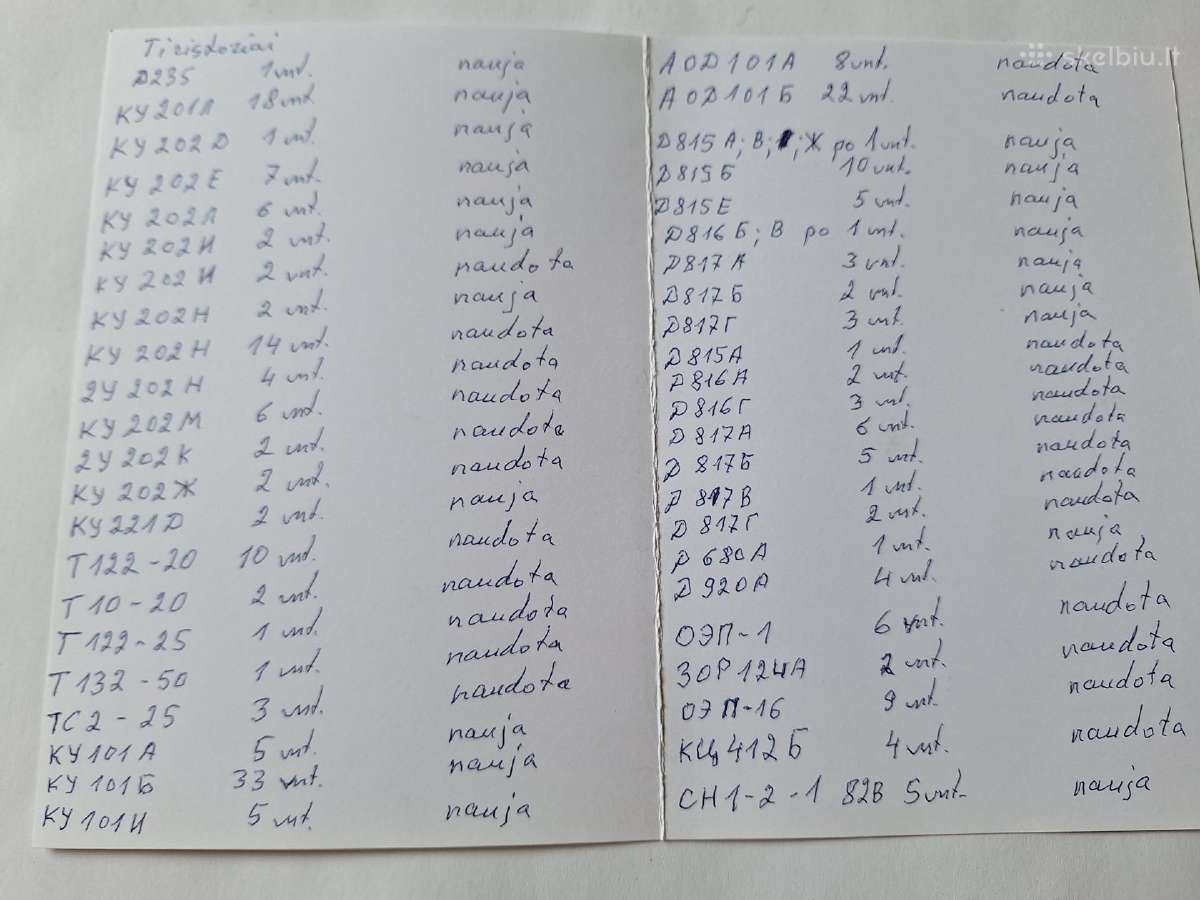 Tiristoriai
Д235 1 vnt. nauja
КУ 201Л 18 vnt nauja
КУ 202D 1 vnt. nauja
КУ 202E 7 vnt. nauja
КУ 202Л 6 vnt. nauja
КУ 202И 2 vnt. nauja
КУ 202И 2 vnt. naudota
КУ 202Н 2 vnt. nauja
КУ 202Н 14 vnt. naudota
2У 202Н 4 vnt. naudota
КУ 202М 6 vnt. naudota
2У 202К 2 vnt. naudota
КУ 202Ж 2 vnt. naudota
КУ 221D 2 vnt. nauja
Т 122-20 10 vnt. naudota
Т 10-20 2 vnt. naudota
Т 122-25 1 vnt. naudota
Т 132-50 1 vnt. naudota
ТС 2-25 3 vnt. naudota
КУ 101А 5 vnt. nauja
КУ 101Б 33 vnt. nauja
КУ 101И 5 vnt. nauja
АОD101А 8 vnt. naudota
АОD101Б 22 vnt. naudota
D815 А; В; ; Ж po 1 vnt. nauja
D815Б 10 vnt. nauja
D815Е 5 vnt. nauja
D816 Б; В po 1 vnt. nauja
D817А 3 vnt. nauja
D817Б 2 vnt. nauja
D817Г 3 vnt. nauja
D815А 1 vnt. naudota
D816А 2 vnt. naudota
D816Г 3 vnt. naudota
D817А 6 vnt. naudota
D817Б 5 vnt. naudota
D817В 1 vnt. naudota
D817Г 2 vnt. naudota
Р 680А 1 vnt. nauja
D920А 4 vnt. naudota
ОЭП-1 6 vnt. naudota
3ОР124А 2 vnt. naudota
ОЭП-16 9 vnt. naudota
КЦ412Б 4 vnt. naudota
СН1-2-1 82В 5 vnt. nauja
skelbiu.lt